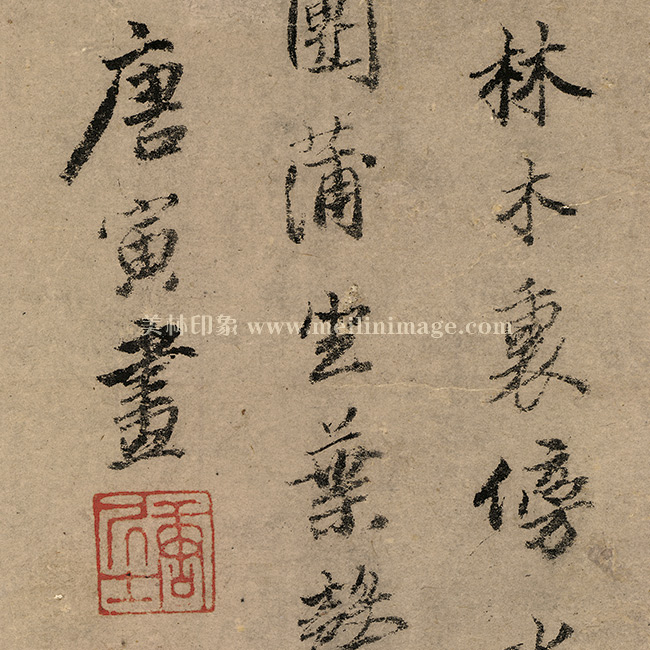 林木裏傍
團蒲坐葉
唐寅畫
唐居士
美林印象 www.meilinimage.com